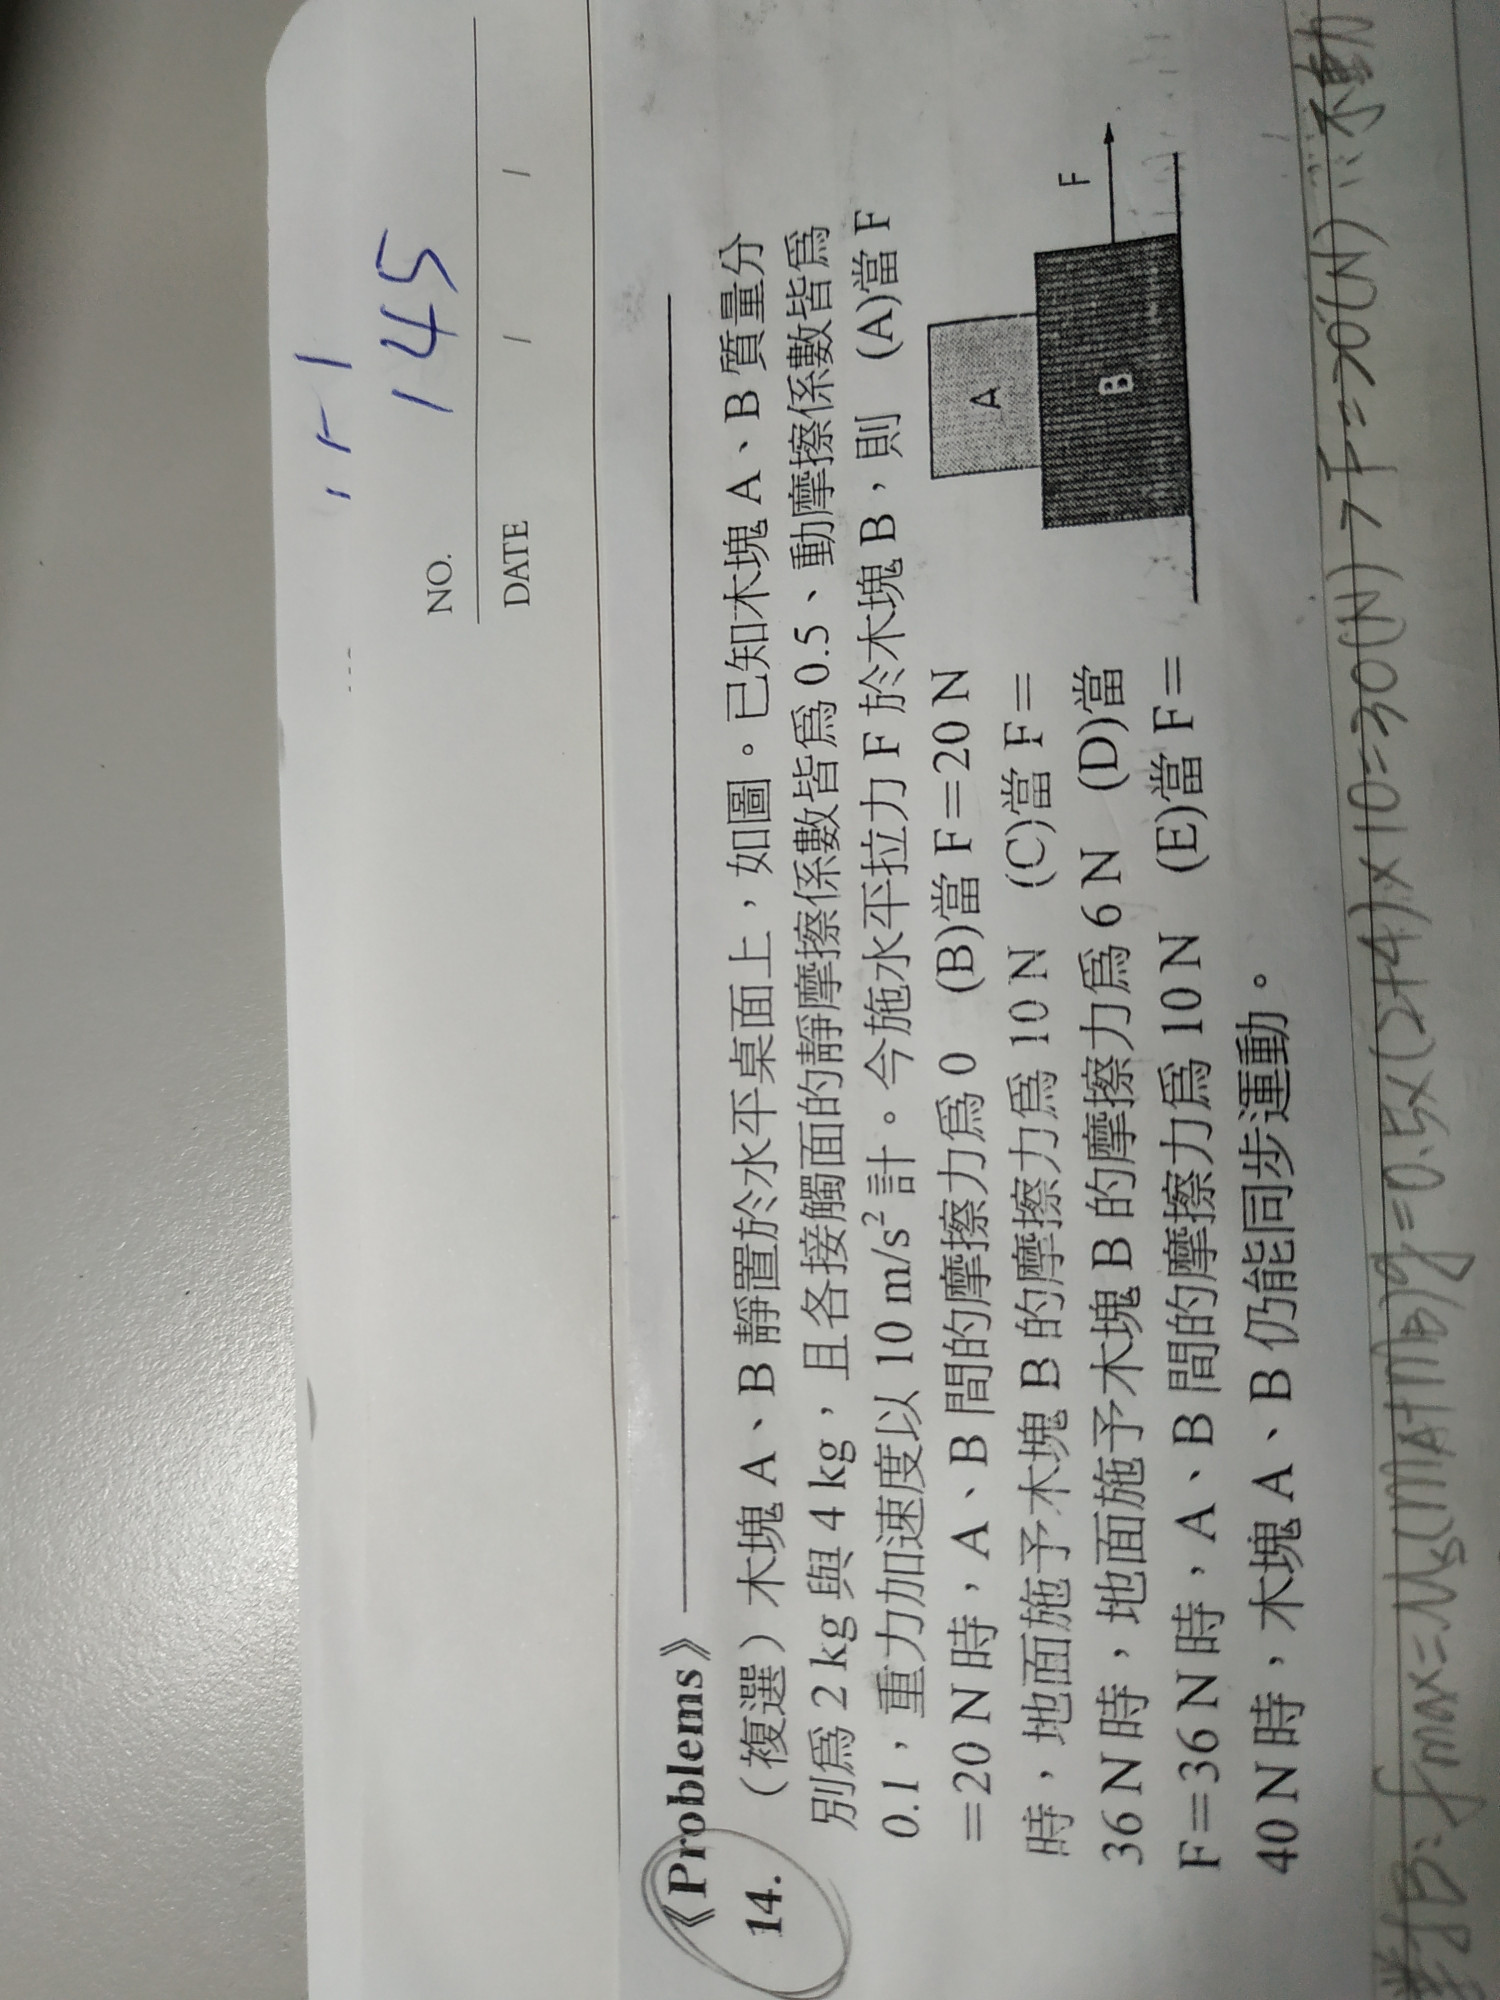 145
NO.
DATE / /
《Problems》
14. （複選）木塊 A、B 靜置於水平桌面上，如圖。已知木塊 A、B 質量分
別爲 2 kg 與 4 kg，且各接觸面的靜摩擦係數皆爲 0.5、動摩擦係數皆爲
0.1，重力加速度以 10 m/s² 計。今施水平拉力 F 於木塊 B，則 (A)當 F
=20 N 時，A、B 間的摩擦力爲 0 (B)當 F=20 N
時，地面施予木塊 B 的摩擦力爲 10 N (C)當 F=
36 N 時，地面施予木塊 B 的摩擦力爲 6 N (D)當
F=36 N 時，A、B 間的摩擦力爲 10 N (E)當 F=
40 N 時，木塊 A、B 仍能同步運動。
A
B
F
fmax=Ms(mA+mB)g=0.5×(2+4)×10=30(N)>F=20(N) ∴不動